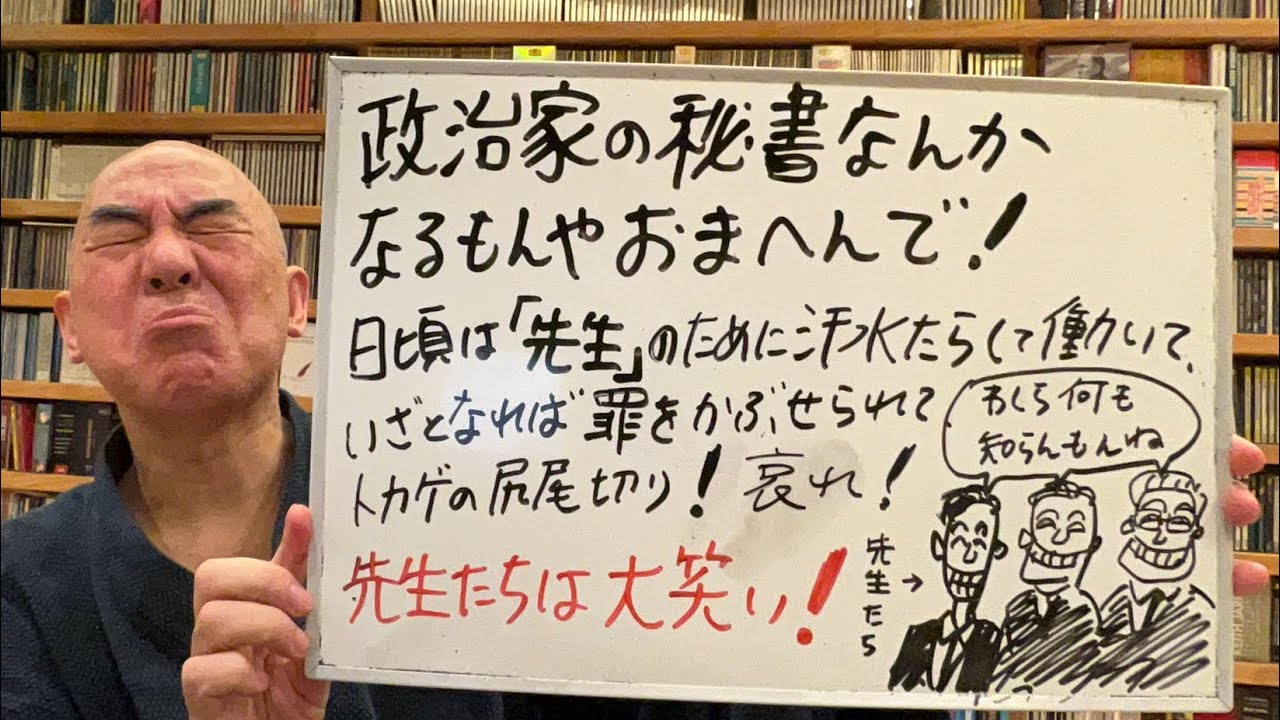 政治家の秘書なんか
なるもんやおまへんで!
日頃は「先生」のために汗水たらして働いて、
いざとなれば罪をかぶせられて
トカゲの尻尾切り!哀れ!
先生たちは大笑い!
わしら何も
知らんもんね
先生たち→